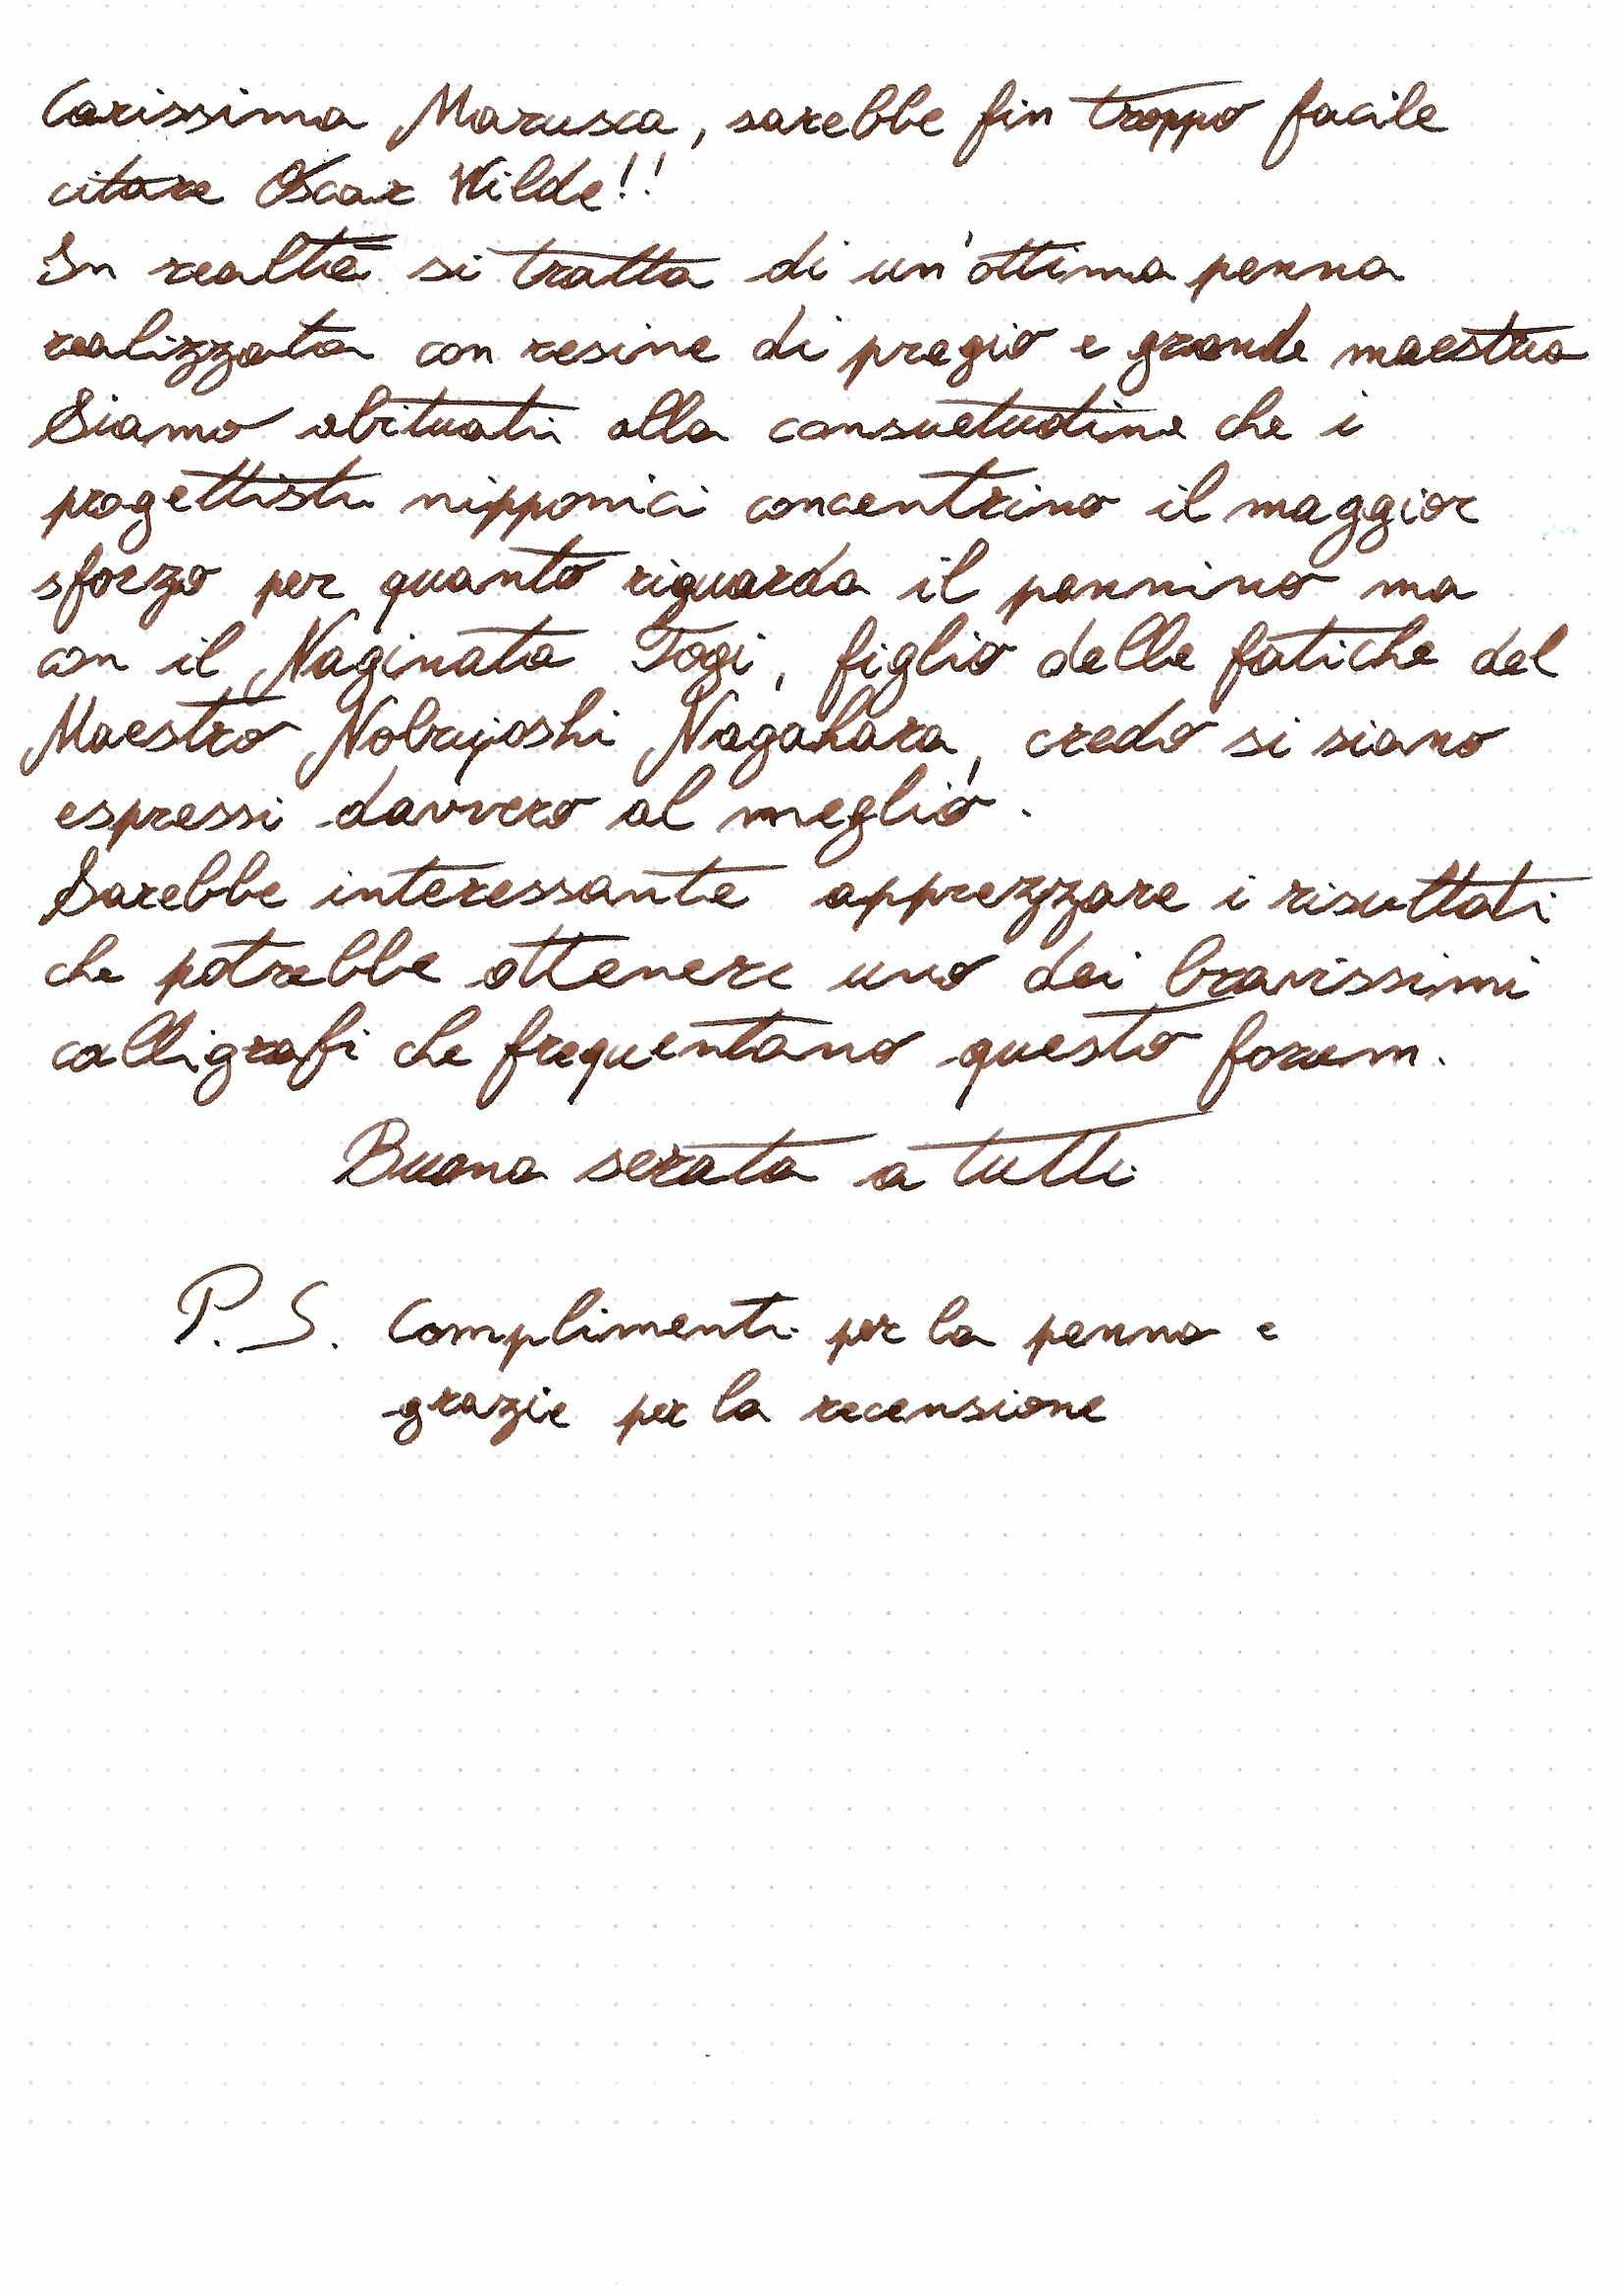 Carissima Marusca, sarebbe fin troppo facile
citare Oscar Wilde!!
In realtà si tratta di un'ottima penna
realizzata con resine di pregio e grande maestria
Siamo abituati alla consuetudine che i
progettisti nipponici concentrino il maggior
sforzo per quanto riguarda il pennino ma
con il Naginata Togi, figlio delle fatiche del
Maestro Nobuyoshi Nagahara, credo si siano
espressi davvero al meglio.
Sarebbe interessante apprezzare i risultati
che potrebbe ottenere uno dei bravissimi
calligrafi che frequentano questo forum.
Buona serata a tutti
P.S. Complimenti per la penna e
grazie per la recensione